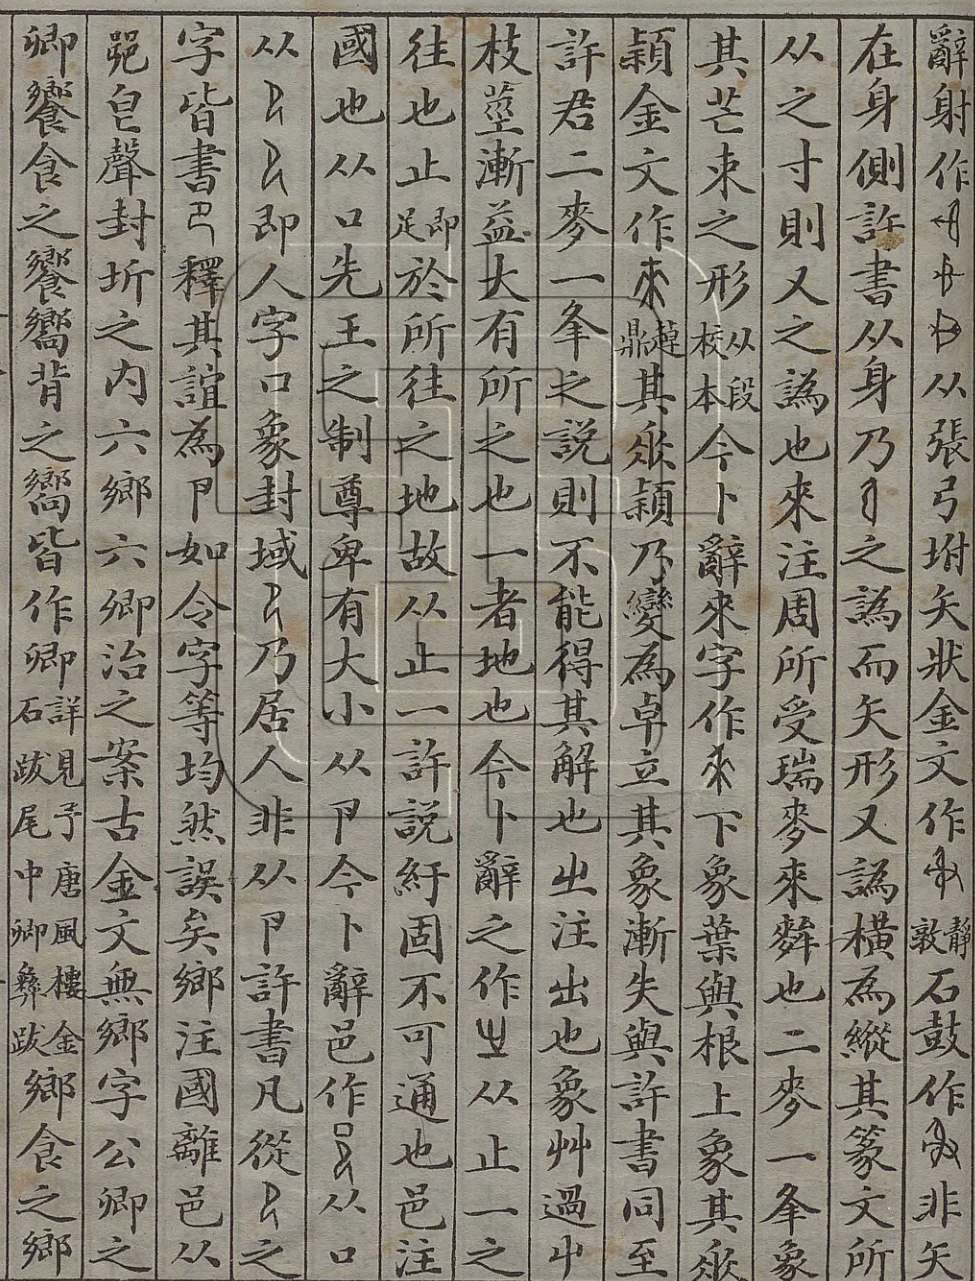 辭射作从張弓坿矢狀金文作靜敦石鼓作非矢
在身側許書从身乃之譌而矢形又譌橫為縱其篆文所
从之寸則又之譌也來注周所受瑞麥來麰也二麥一夆象
其芒朿之形从段校本今卜辭來字作下象葉與根上象其
穎金文作趞鼎其穎乃變為卓立其象漸失與許書同至
許君二麥一夆之說則不能得其解也㞢注出也象艸過屮
枝莖漸益大有所之也一者地也今卜辭之作从止一之
往也止即足於所往之地故从止一許說紆固不可通也邑注
國也从口先王之制尊卑有大小从卪今卜辭邑作从口
从即人字口象封域乃居人非从卪許書凡從之
字皆書㔾釋其誼為卪如令字等均然誤矣鄉注國離邑从
𨛜皀聲封圻之內六鄉六卿治之案古金文無鄉字公卿之
卿饗食之饗嚮背之嚮皆作卿詳見予唐風樓金石跋尾中卿彝跋鄉食之鄉